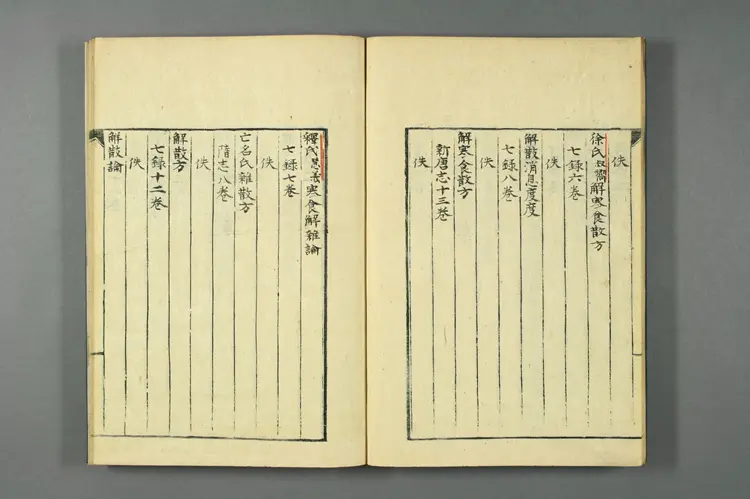 佚
徐氏叔嚮解寒食散方
七録六卷
佚
解散消息度度
七録八卷
佚
解寒食散方
新唐志十三卷
佚
釋氏慧義寒食解雜論
七録七卷
佚
亡名氏雜散方
隋志八卷
佚
解散方
七録十二卷
佚
解散論